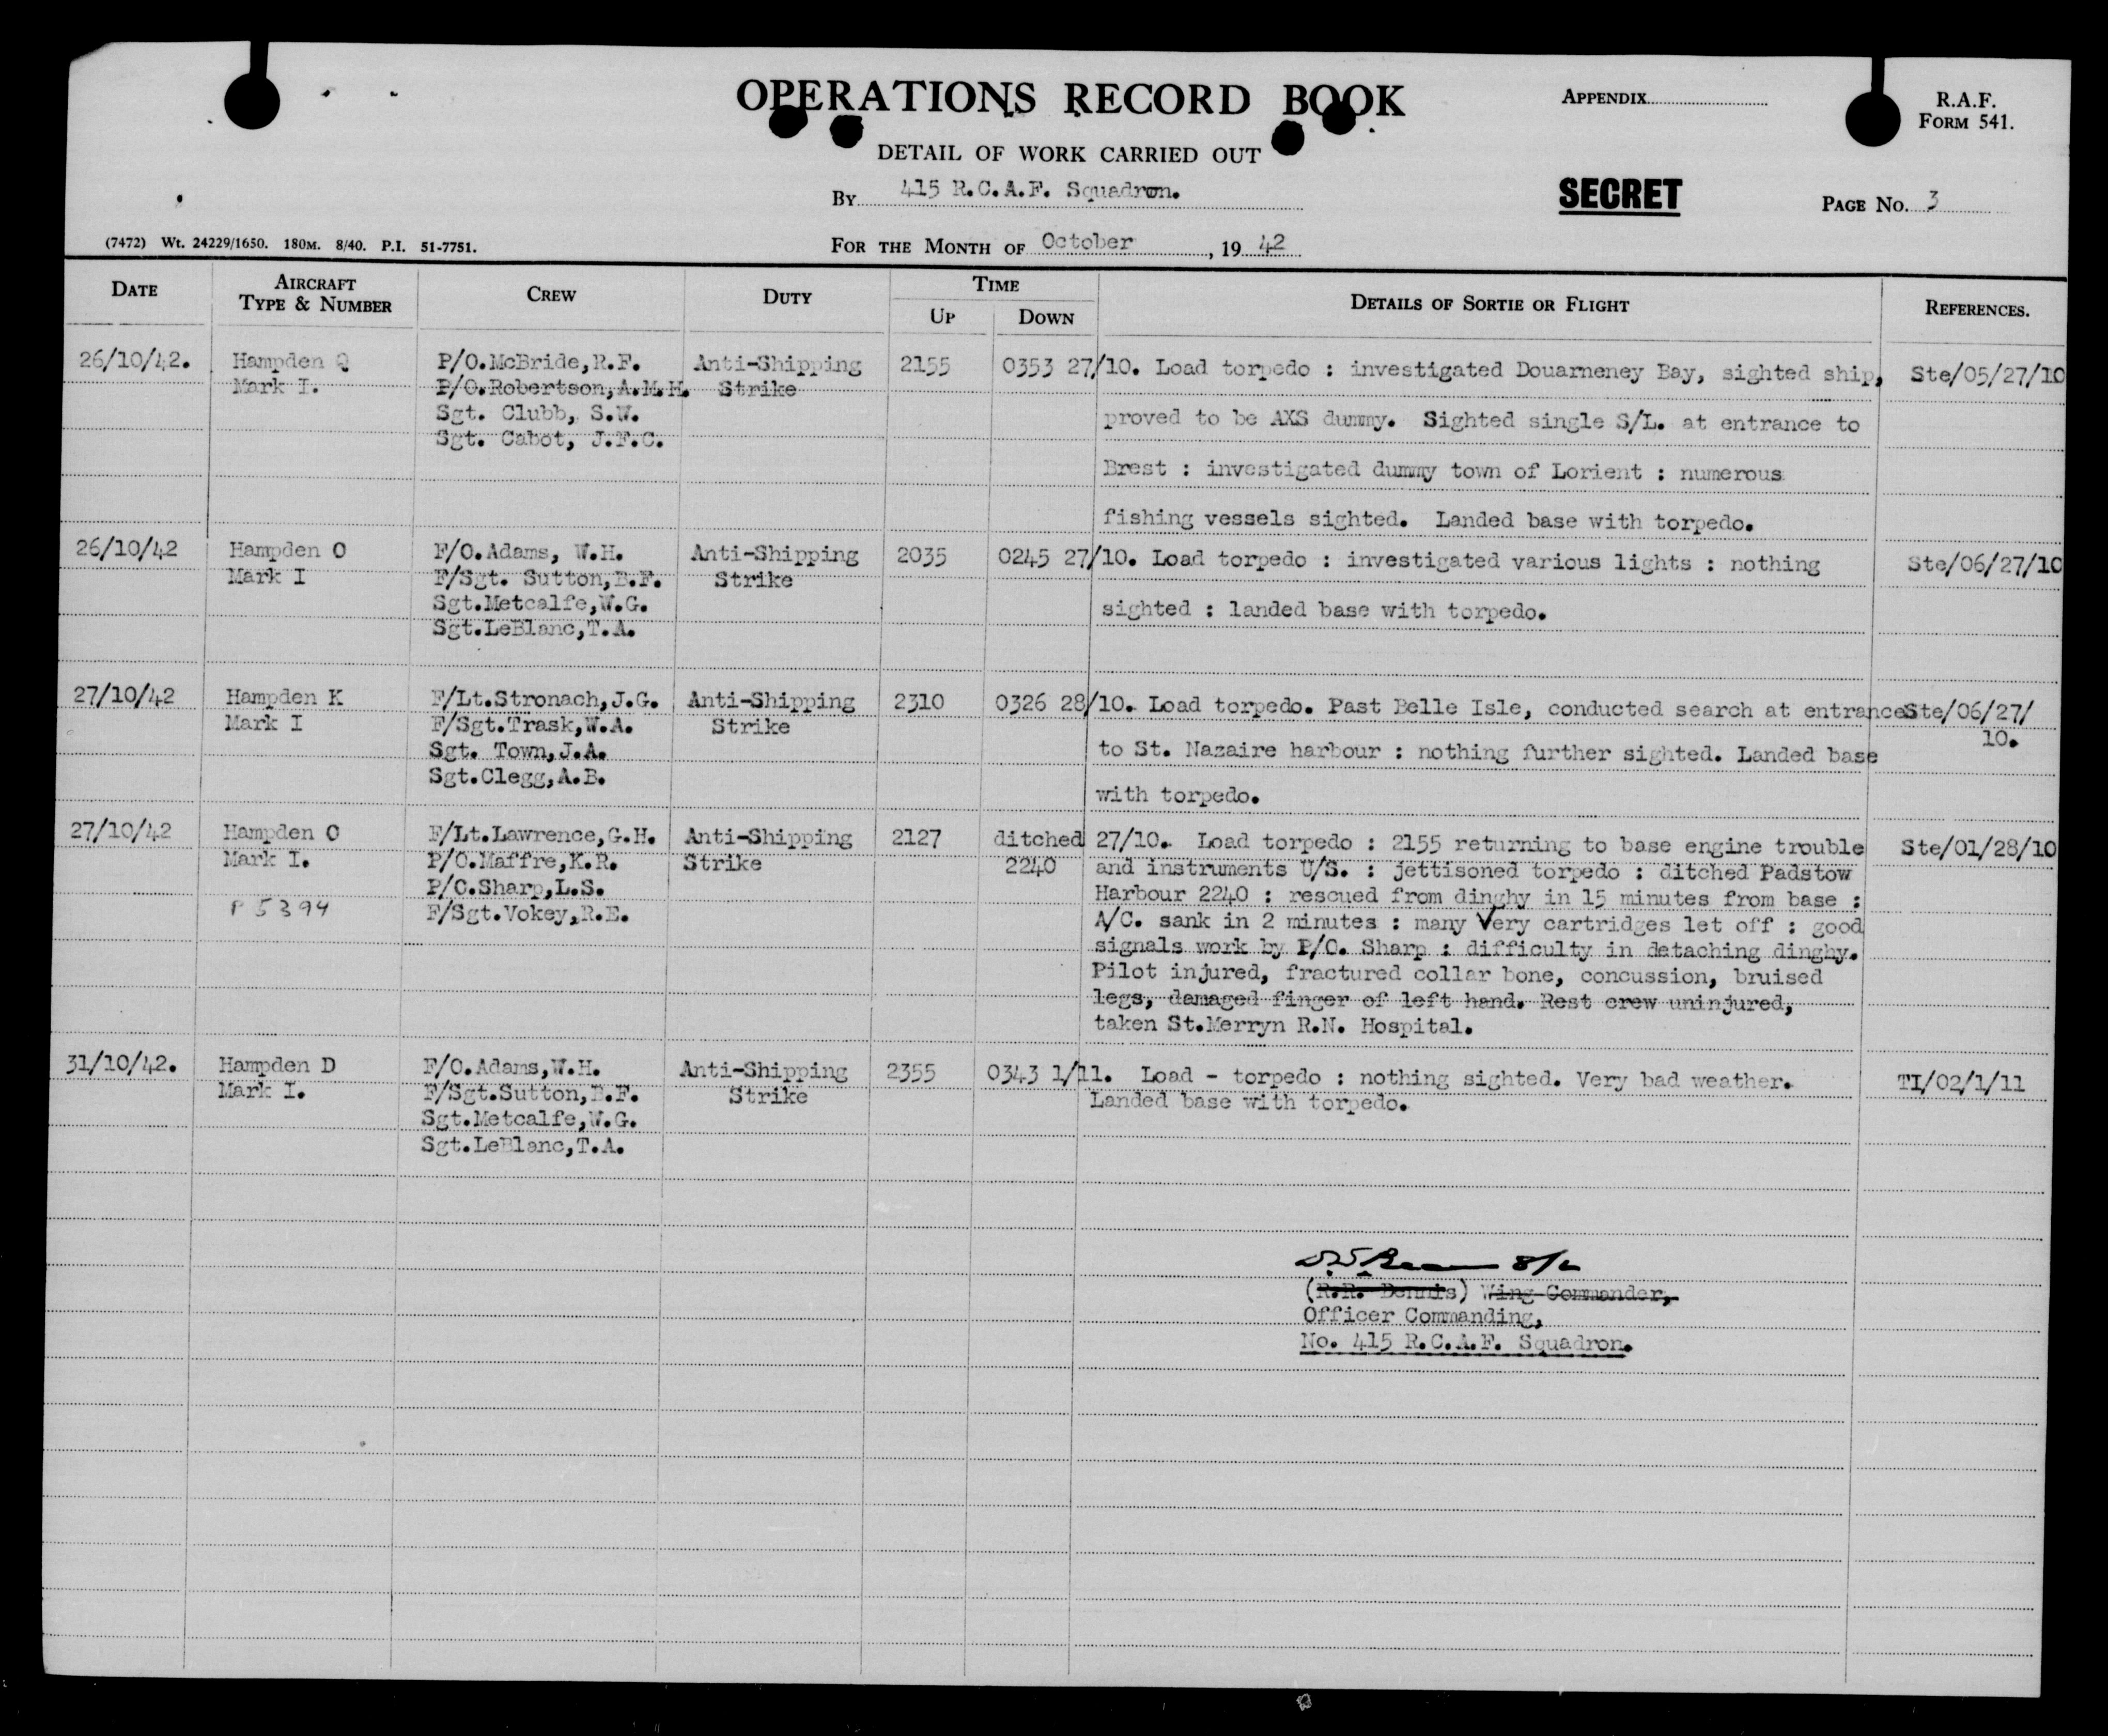 OPERATIONS RECORD BOOK
APPENDIX
R.A.F.
FORM 541.
DETAIL OF WORK CARRIED OUT
BY 415 R.C.A.F. Squadron.
SECRET
PAGE NO. 3
(7472) Wt. 24229/1650. 180M. 8/40. P.I. 51-7751.
FOR THE MONTH OF October, 19 42
DATE
AIRCRAFT
TYPE & NUMBER
CREW
DUTY
TIME
UP
DOWN
DETAILS OF SORTIE OR FLIGHT
REFERENCES.
26/10/42. Hampden Q P/O.McBride,R.F. Anti-Shipping 2155 0353 27/10. Load torpedo : investigated Douarneney Bay, sighted ship, Ste/05/27/10
Mark I. P/O.Robertson,A.M.H. Strike
Sgt. Clubb, S.W. proved to be AXS dummy. Sighted single S/L. at entrance to
Sgt. Cabot, J.F.C.
Brest : investigated dummy town of Lorient : numerous
fishing vessels sighted. Landed base with torpedo.
26/10/42 Hampden O F/O.Adams, W.H. Anti-Shipping 2035 0245 27/10. Load torpedo : investigated various lights : nothing Ste/06/27/10
Mark I F/Sgt. Sutton,B.F. Strike
Sgt.Metcalfe,W.G. sighted : landed base with torpedo.
Sgt.LeBlanc,T.A.
27/10/42 Hampden K F/Lt.Stronach,J.G. Anti-Shipping 2310 0326 28/10. Load torpedo. Past Belle Isle, conducted search at entrance Ste/06/27/
Mark I F/Sgt.Trask,W.A. Strike 10.
Sgt. Town,J.A. to St. Nazaire harbour : nothing further sighted. Landed base
Sgt.Clegg,A.B.
with torpedo.
27/10/42 Hampden O F/Lt.Lawrence,G.H. Anti-Shipping 2127 ditched 27/10. Load torpedo : 2155 returning to base engine trouble Ste/01/28/10
Mark I. P/O.Maffre,K.R. Strike 2240 and instruments U/S. : jettisoned torpedo : ditched Padstow
P/O.Sharp,L.S. Harbour 2240 : rescued from dinghy in 15 minutes from base :
P 5394 F/Sgt.Vokey,R.E. A/C. sank in 2 minutes : many Very cartridges let off : good
signals work by P/O. Sharp : difficulty in detaching dinghy.
Pilot injured, fractured collar bone, concussion, bruised
legs, damaged finger of left hand. Rest crew uninjured,
taken St.Merryn R.N. Hospital.
31/10/42. Hampden D F/O.Adams,W.H. Anti-Shipping 2355 0343 1/11. Load - torpedo : nothing sighted. Very bad weather. TI/02/1/11
Mark I. F/Sgt.Sutton,B.F. Strike Landed base with torpedo.
Sgt.Metcalfe,W.G.
Sgt.LeBlanc,T.A.
(R.R. Dennis) Wing Commander,
Officer Commanding,
No. 415 R.C.A.F. Squadron.